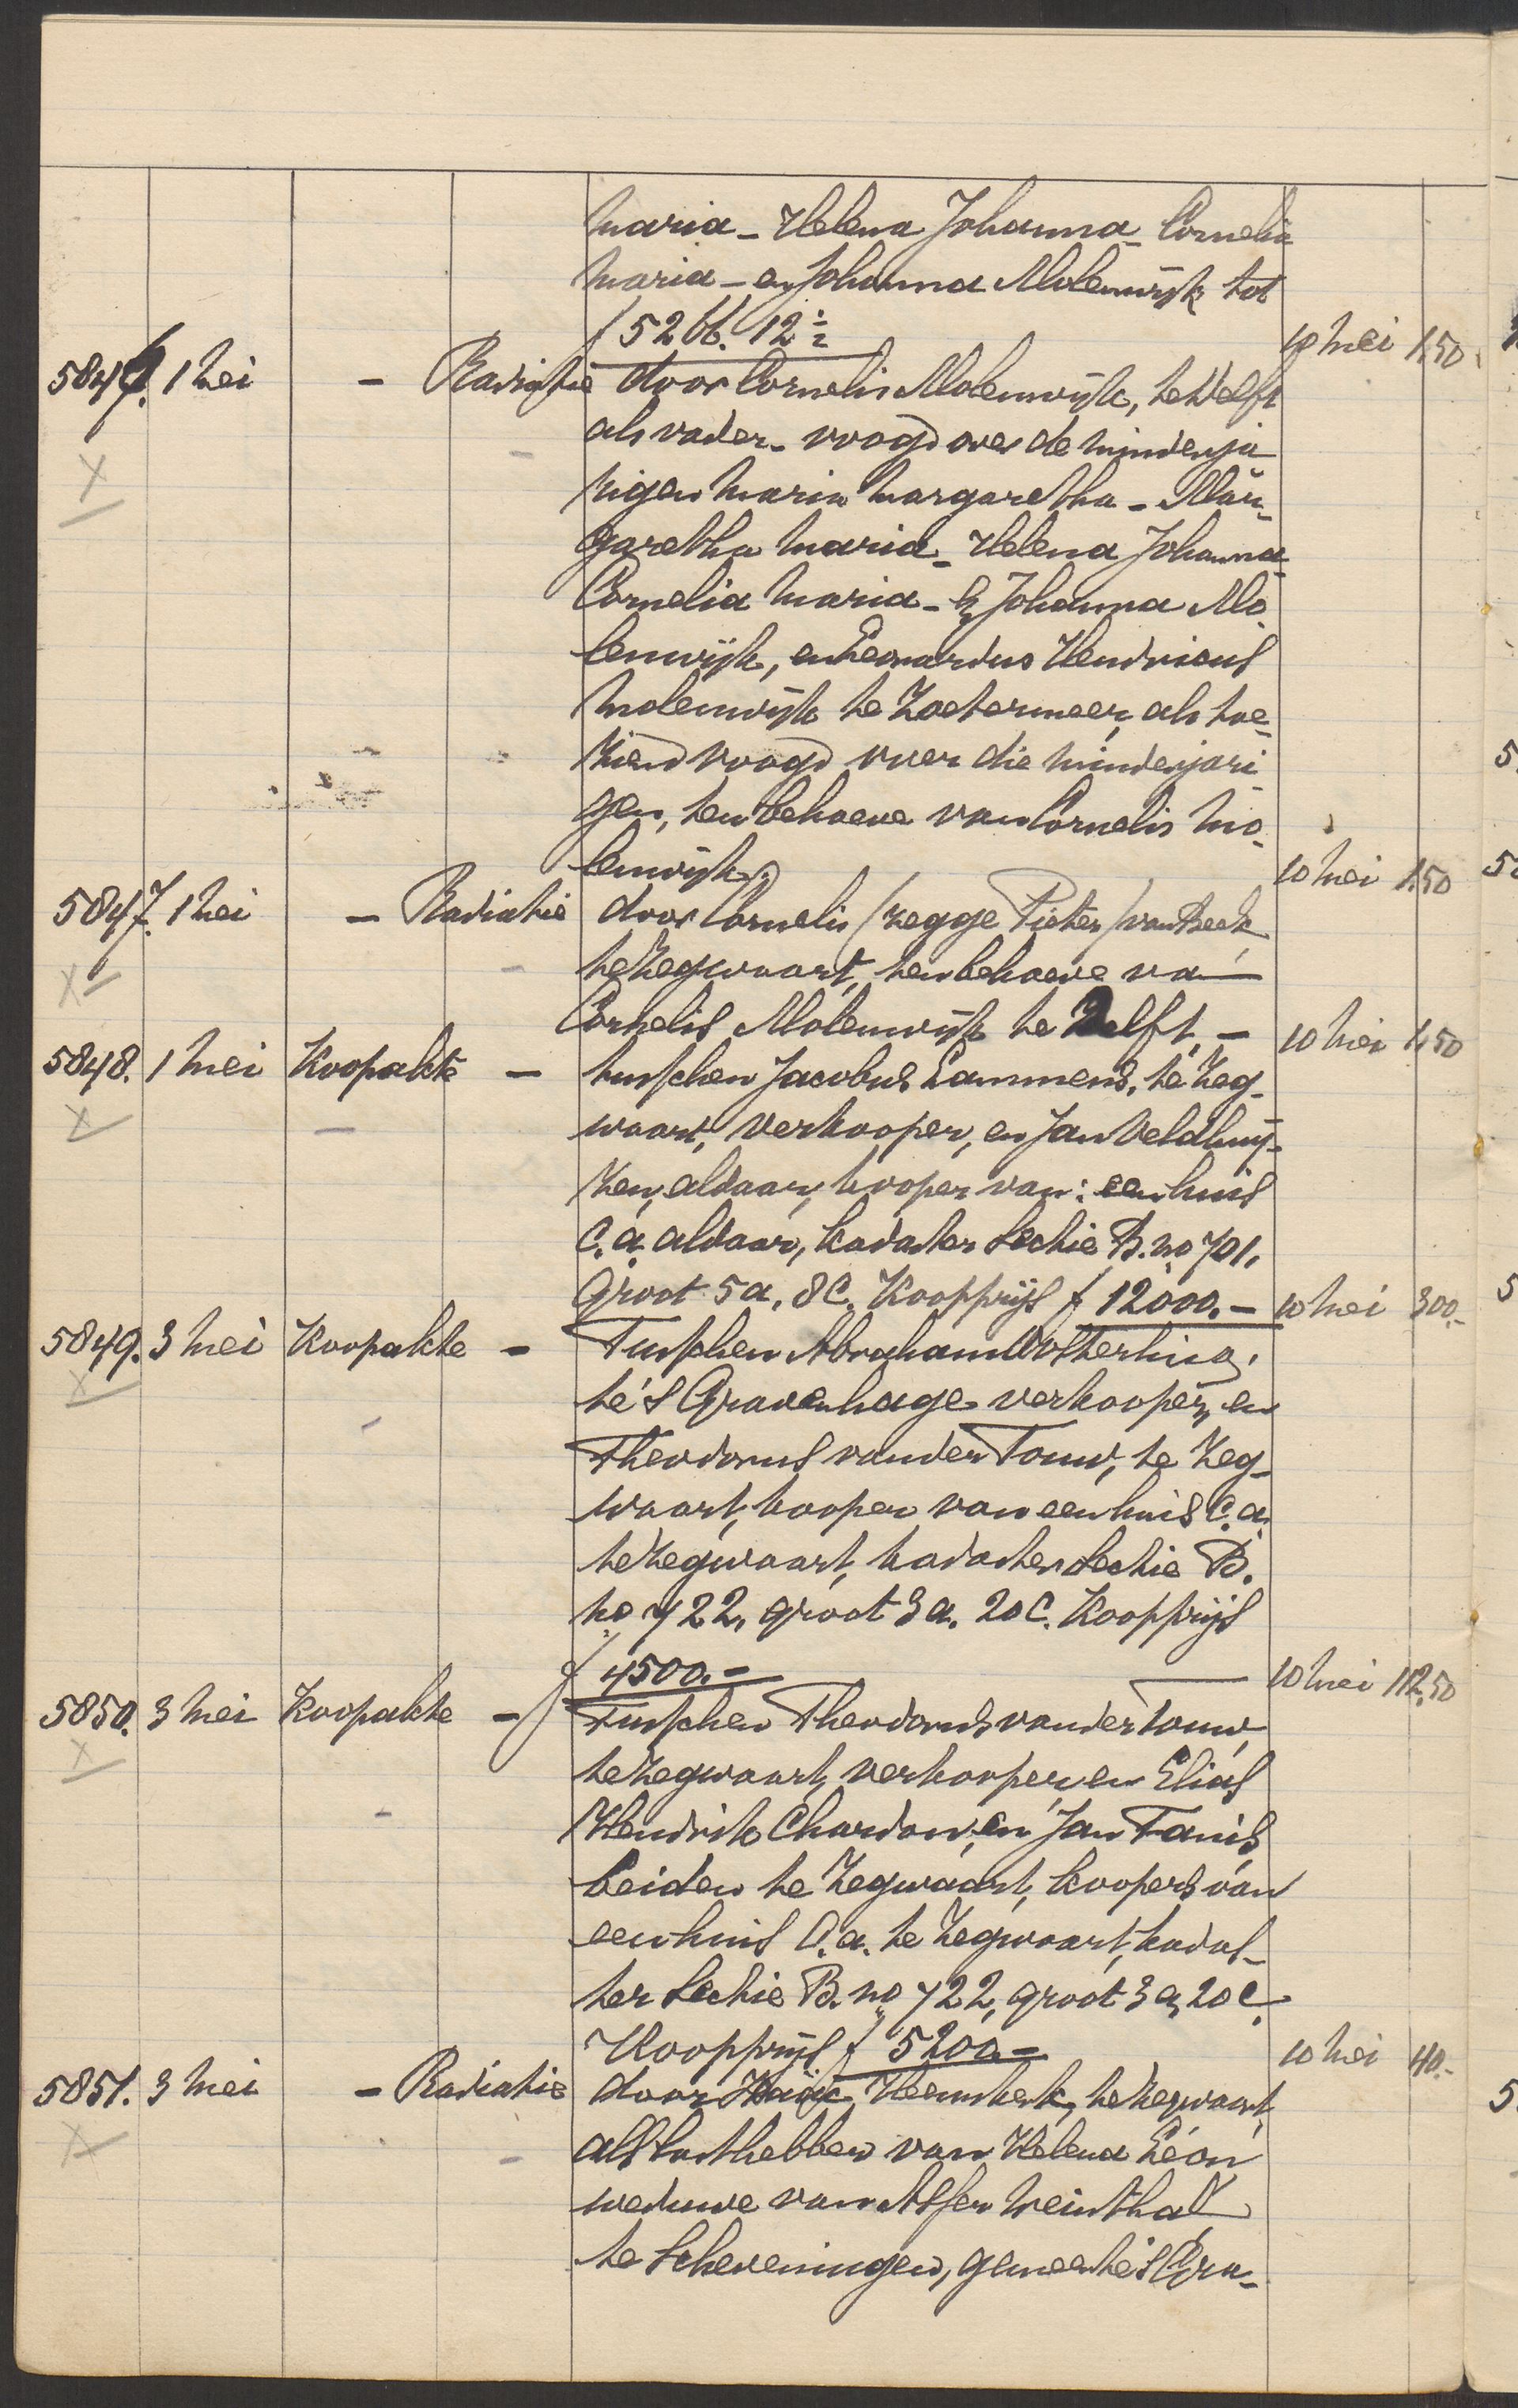 Maria - Helena Johanna - Cornelia
Maria - en Johanna Molenwijk tot
f 5266.12½ 10 Mei 1.50
5846. 1 Mei - Radiatie door Cornelis Molenwijk, te Delft
als vader-voogd over de minderja
rigen Maria Margaretha - Mar-
garetha Maria - Helena Johanna -
Cornelia Maria - & Johanna Mo-
lenwijk, en Leonardus Hendricus
Molenwijk te Zoetermeer, als toe-
ziend voogd over die minderjari
gen, ten behoeve van Cornelis Mo-
lenwijk. 10 Mei 1.50
5847. 1 Mei - Radiatie door Cornelis (zegge Pieter) van Beek
te Zegwaart, ten behoeve van
Cornelis Molenwijk te Delft. - 10 Mei 1.50
5848. 1 Mei Koopakte - tusschen Jacobus Lammens, te Zeg-
waart, verkooper, en Jan Veldhuij-
zen, aldaar, kooper van: een huis
c.a. aldaar, kadaster Sectie B. no 701,
groot 5 a. 8 c. Koopprijs f 12000.- 10 Mei 300.-
5849. 3 Mei Koopakte - Tusschen Abraham Wolterling,
te 's Gravenhage verkooper, en
Theodorus van der Touw, te Zeg-
waart, kooper van een huis c.a.
te Zegwaart, kadaster Sectie B.
no 722, groot 3 a. 20 c. Koopprijs
f 4500.- 10 Mei 112.50
5850. 3 Mei Koopakte - Tusschen Theodorus van der Touw,
te Zegwaart, verkooper, en Elias
Hendrik Chardon, en Jan Tanis,
beiden te Zegwaart, koopers van
een huis c.a. te Zegwaart, kadas-
ter Sectie B. no 722, groot 3 a, 20 c.
Koopprijs f 5200.- 10 Mei 40.-
5851. 3 Mei - Radiatie door Heemskerk, te Zegwaart,
als lasthebber van Helena Léon
weduwe van Weinthal
te Scheveningen, gemeente 's Gra-